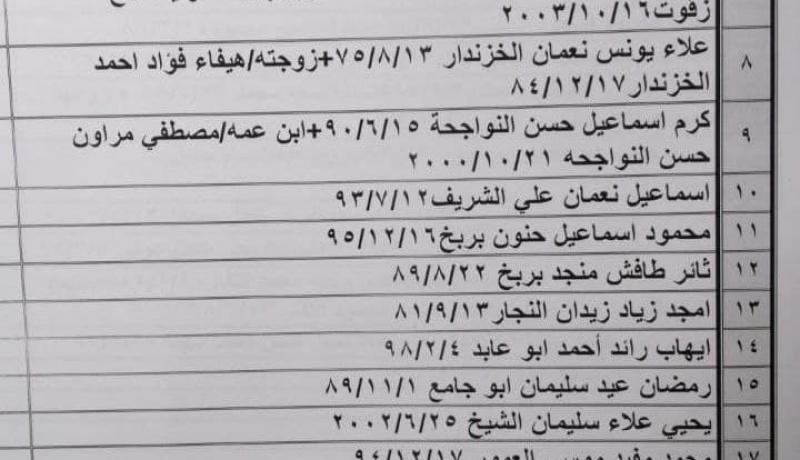 زقوت ٢٠٠٣/١٠/١٦
٨ علاء يونس نعمان الخزندار ٧٥/٨/١٣+زوجته/هيفاء فؤاد احمد
الخزندار ٨٤/١٢/١٧
٩ كرم اسماعيل حسن النواجحة ٩٠/٦/١٥+ابن عمه/مصطفي مراون
حسن النواجحه ٢٠٠٠/١٠/٢١
١٠ اسماعيل نعمان علي الشريف ٩٣/٧/١٢
١١ محمود اسماعيل حنون بربخ ٩٥/١٢/١٦
١٢ ثائر طافش منجد بربخ ٨٩/٨/٢٢
١٣ امجد زياد زيدان النجار ٨١/٩/١٣
١٤ ايهاب رائد أحمد ابو عابد ٩٨/٢/٤
١٥ رمضان عيد سليمان ابو جامع ٨٩/١١/١
١٦ يحيي علاء سليمان الشيخ ٢٠٠٢/٦/٢٥
١٧ محمد مفيد